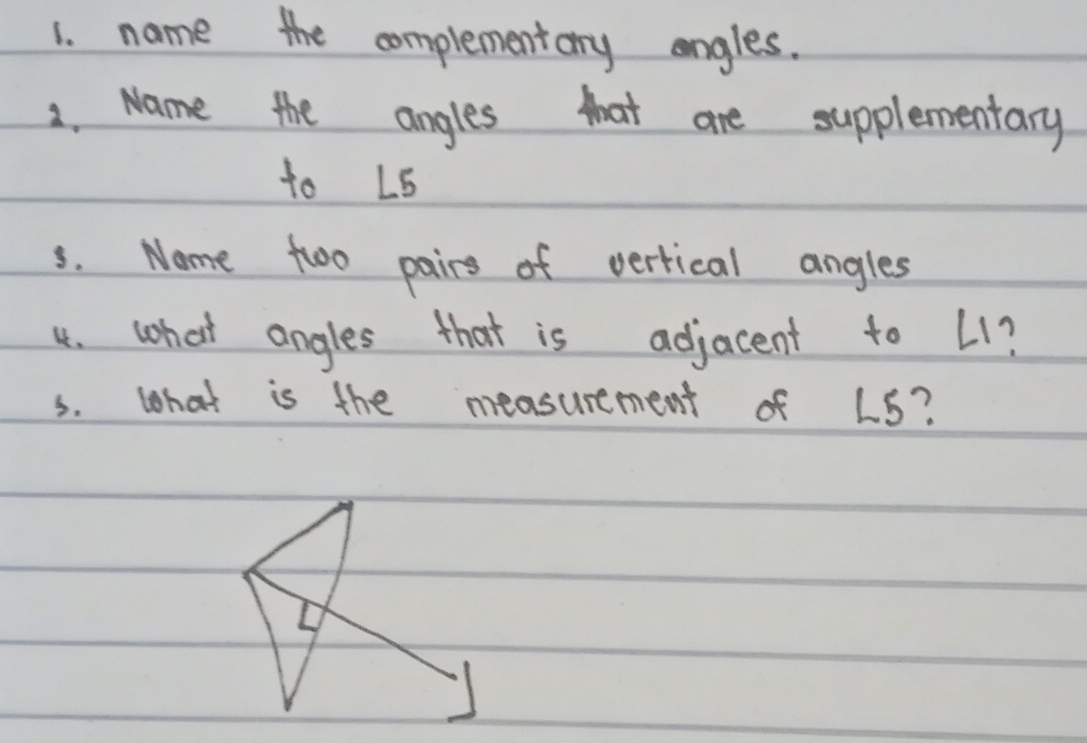 1. name the complementary angles.
2. Name the angles that are supplementary
to ∠5
3. Name two pairs of vertical angles
4. what angles that is adjacent to ∠1?
5. what is the measurement of ∠5?